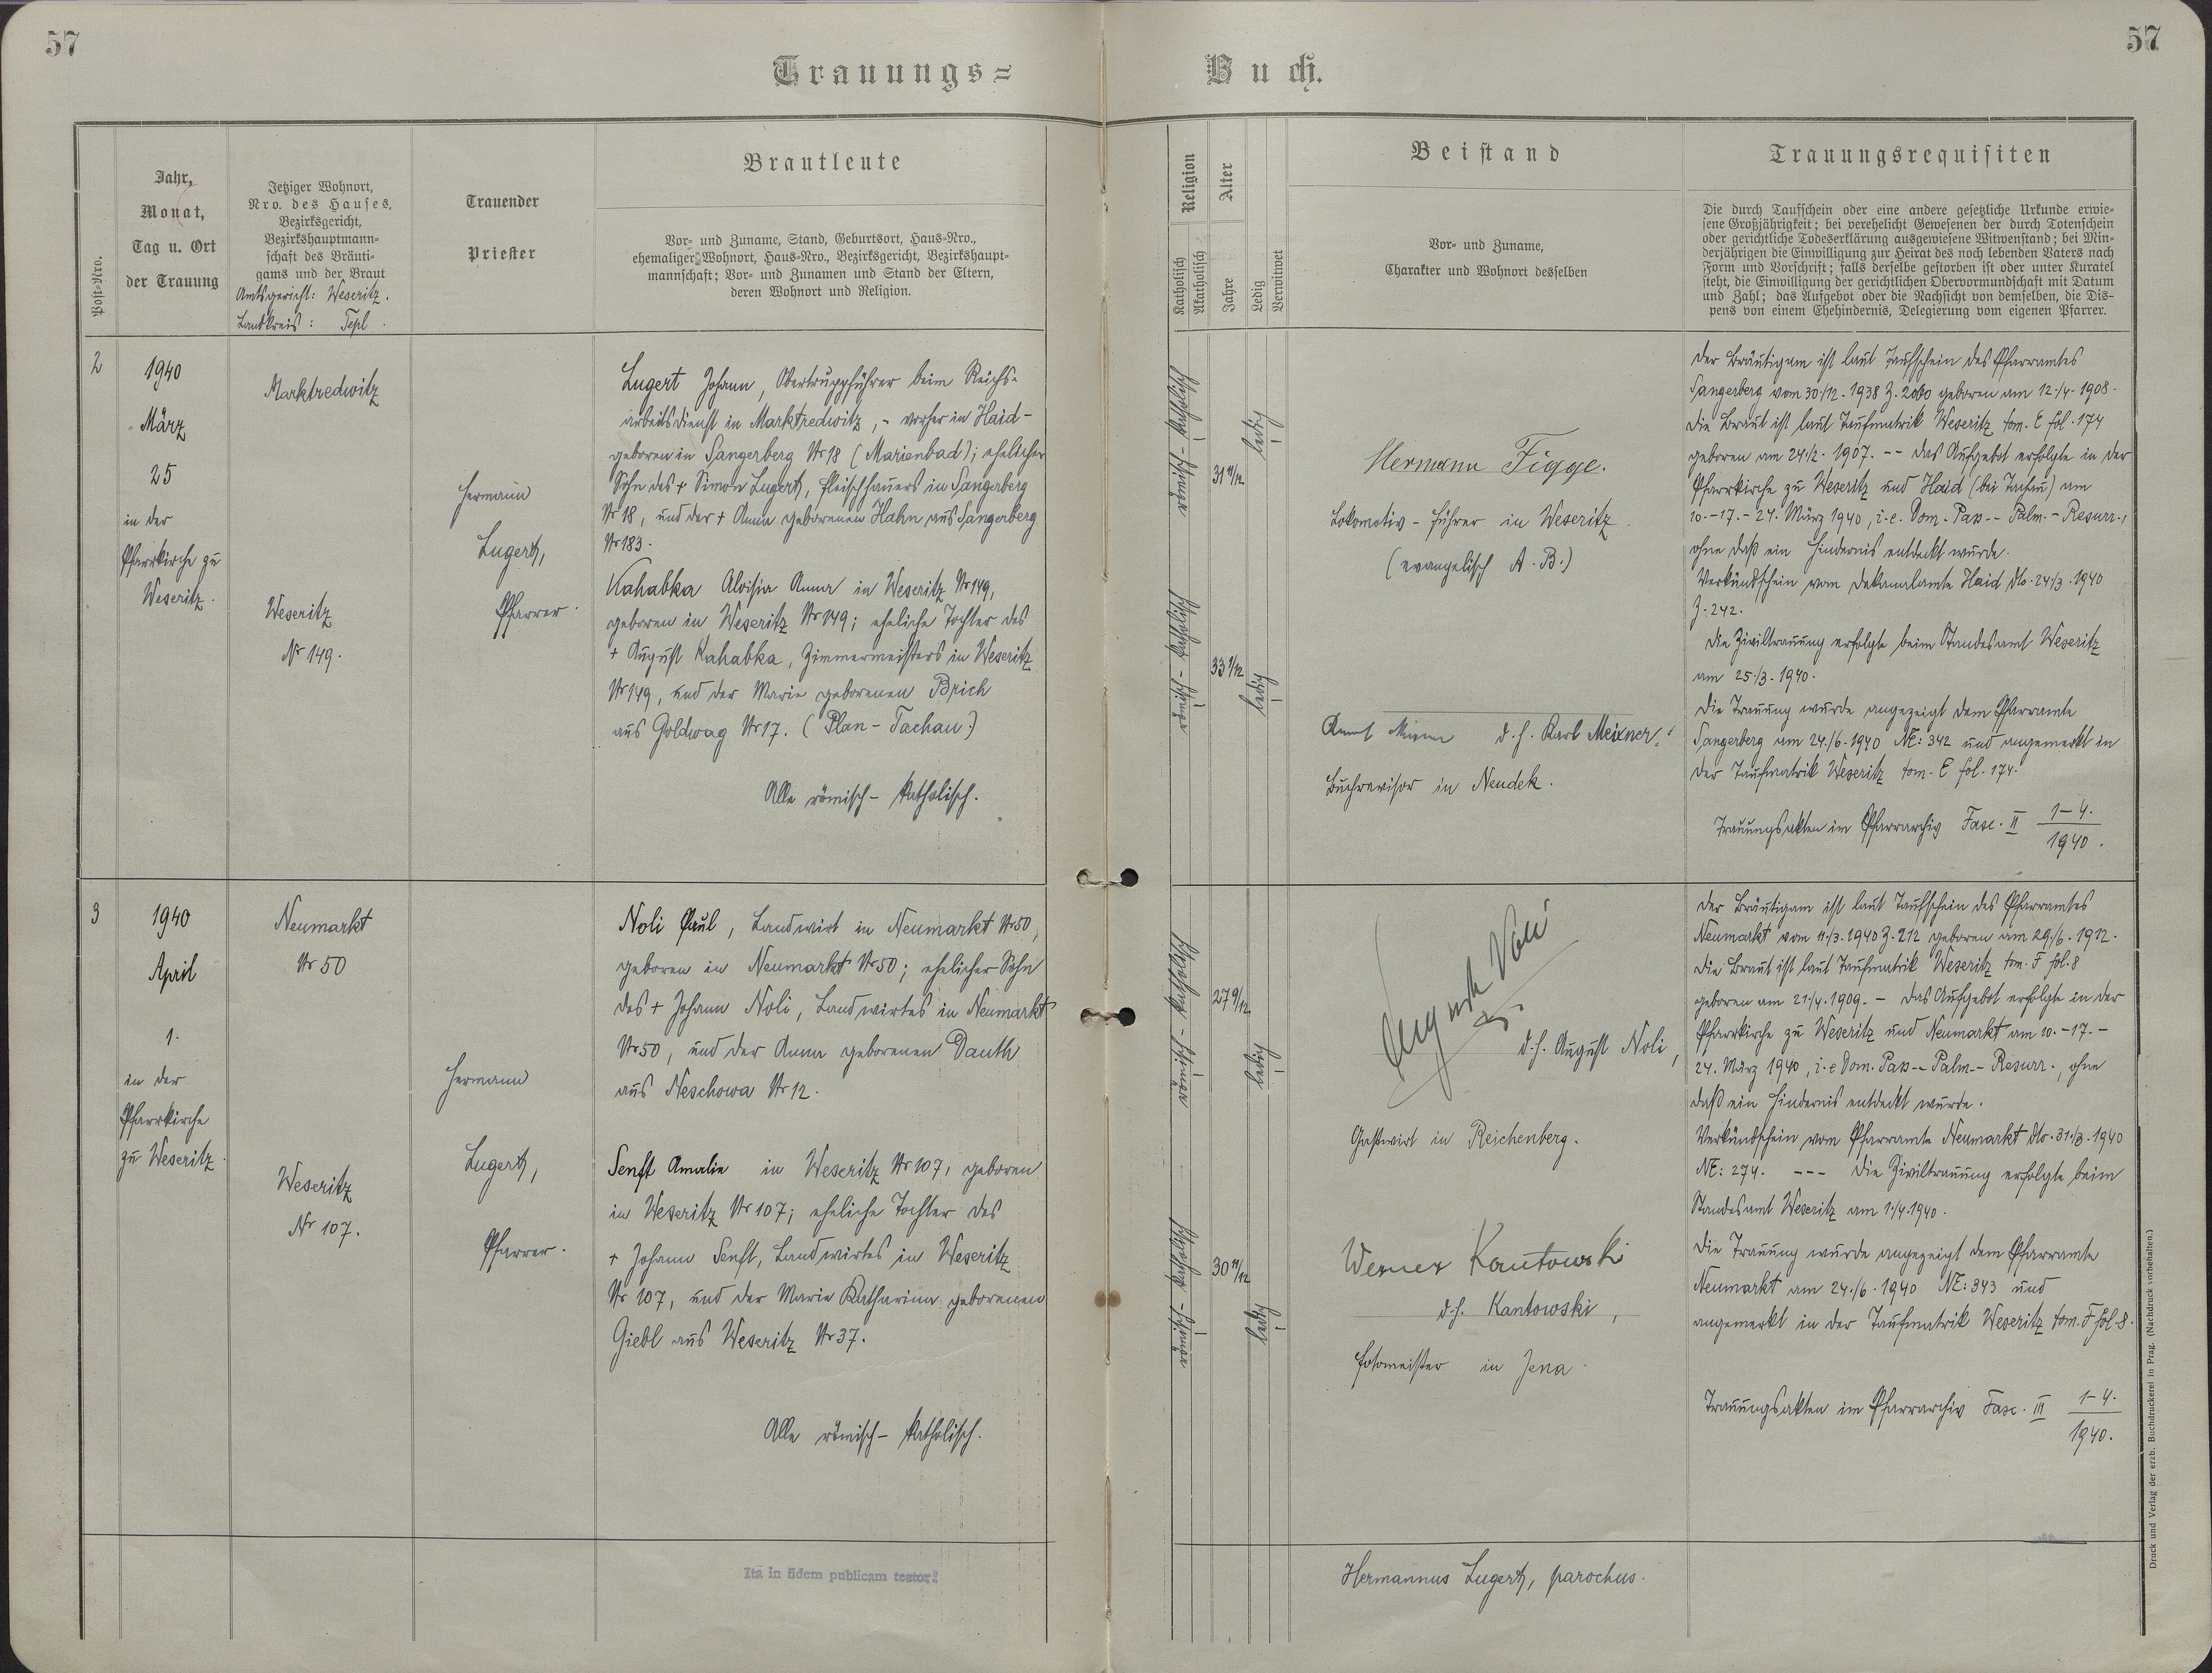 57
57
Trauungs=
Buch.
Post=Nro.
Jahr,
Monat,
Tag u. Ort
der Trauung
Jetziger Wohnort,
Nro. des Hauses,
Bezirksgericht,
Bezirkshauptmann=
schaft des Bräuti=
gams und der Braut
Amtsgericht: Weseritz.
Landkreis: Tepl.
Trauender
Priester
Brautleute
Vor= und Zuname, Stand, Geburtsort, Haus=Nro.,
ehemaliger Wohnort, Haus=Nro., Bezirksgericht, Bezirkshaupt=
mannschaft; Vor= und Zunamen und Stand der Eltern,
deren Wohnort und Religion.
Religion
Katholisch
Akatholisch
Alter
Jahre
Ledig
Verwitwet
Beistand
Vor= und Zuname,
Charakter und Wohnort desselben
Trauungsrequisiten
Die durch Taufschein oder eine andere gesetzliche Urkunde erwie=
sene Großjährigkeit; bei verehelicht Gewesenen der durch Totenschein
oder gerichtliche Todeserklärung ausgewiesene Witwenstand; bei Min=
derjährigen die Einwilligung zur Heirat des noch lebenden Vaters nach
Form und Vorschrift; falls derselbe gestorben ist oder unter Kuratel
steht, die Einwilligung der gerichtlichen Obervormundschaft mit Datum
und Zahl; das Aufgebot oder die Nachsicht von demselben, die Dis=
pens von einem Ehehindernis, Delegierung vom eigenen Pfarrer.
2
1940
März
25
in der
Pfarrkirche zu
Weseritz.
Marktredwitz
Weseritz
Nr 149.
Hermann
Lugert,
Pfarrer.
Lugert Johann, Obertruppführer beim Reichs-
arbeitsdienst in Marktredwitz, - vorher in Haid -
geboren in Sangerberg Nr 18 (Marienbad); ehelicher
Sohn des + Simon Lugert, Fleischhauers in Sangerberg
Nr 18, und der + Anna geborenen Hahn aus Sangerberg
Nr 183.
Kahabka Aloisia Anna in Weseritz Nr 149,
geboren in Weseritz Nr 149; eheliche Tochter des
+ August Kahabka, Zimmermeisters in Weseritz
Nr 149, und der Marie geborenen Brich
aus Goldwag Nr 17. (Plan - Tachau)
Alle römisch - katholisch.
römisch - katholisch
31 11/12
ledig
römisch - katholisch
33 1/12
ledig
Hermann Figge.
Lokomotiv - Führer in Weseritz.
(evangelisch A. B.)
d. h. Karl Meixner,
Buchrevisor in Neudek.
Der Bräutigam ist laut Taufschein des Pfarramtes
Sangerberg vom 30./12. 1938 Z. 2060 geboren am 12./4. 1908.
Die Braut ist laut Taufmatrik Weseritz tom. E fol. 174
geboren am 24./2. 1907. -- Das Aufgebot erfolgte in der
Pfarrkirche zu Weseritz und Haid (bei Tachau) am
10. - 17. - 24. März 1940, i. e. Dom. Pass -- Palm. - Resurr.,
ohne daß ein Hindernis entdeckt wurde.
Verkündschein vom Dekanalamte Haid dto. 24./3. 1940
Z. 242.
Die Ziviltrauung erfolgte beim Standesamt Weseritz
am 25./3. 1940.
Die Trauung wurde angezeigt dem Pfarramte
Sangerberg am 24./6. 1940 NE: 342 und angemerkt in
der Taufmatrik Weseritz tom. E fol. 174.
Trauungsakten im Pfarrarchiv Fasc. II 1-4.
1940.
3
1940
April
1.
in der
Pfarrkirche
zu Weseritz.
Neumarkt
Nr 50
Weseritz
Nr 107.
Hermann
Lugert,
Pfarrer.
Noli Paul, Landwirt in Neumarkt Nr 50,
geboren in Neumarkt Nr 50; ehelicher Sohn
des + Johann Noli, Landwirtes in Neumarkt
Nr 50, und der Anna geborenen Dauth
aus Neschowa Nr 12.
Senft Amalie in Weseritz Nr 107, geboren
in Weseritz Nr 107; eheliche Tochter des
+ Johann Senft, Landwirtes in Weseritz
Nr 107, und der Marie Katharina geborenen
Giebl aus Weseritz Nr 37.
Alle römisch - katholisch.
römisch - katholisch
27 9/12
ledig
römisch - katholisch
30 11/12
ledig
August Noli
d. h. August Noli,
Gastwirt in Reichenberg.
Werner Kantowski
d. h. Kantowski,
Fotomeister in Jena.
Der Bräutigam ist laut Taufschein des Pfarramtes
Neumarkt vom 11./3. 1940 Z. 212 geboren am 29./6. 1912.
Die Braut ist laut Taufmatrik Weseritz tom. F fol. 8
geboren am 21./4. 1909. - Das Aufgebot erfolgte in der
Pfarrkirche zu Weseritz und Neumarkt am 10. - 17. -
24. März 1940, i. e Dom. Pass -- Palm -- Resurr., ohne
daß ein Hindernis entdeckt wurde.
Verkündschein vom Pfarramte Neumarkt dto. 31./3. 1940
NE: 274. --- Die Ziviltrauung erfolgte beim
Standesamt Weseritz am 1./4. 1940.
Die Trauung wurde angezeigt dem Pfarramte
Neumarkt am 24./6. 1940 NE: 343 und
angemerkt in der Taufmatrik Weseritz tom. F fol. 8.
Trauungsakten im Pfarrarchiv Fasc. III 1-4.
1940.
Ita in fidem publicam testor:
Hermannus Lugert, parochus.
Druck und Verlag der erzb. Buchdruckerei in Prag. (Nachdruck vorbehalten.)